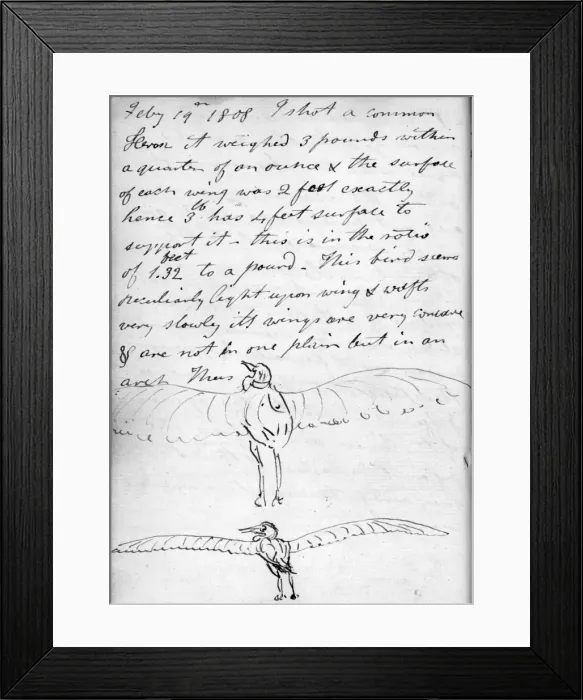 Feby 19th 1808 I shot a common
Heron it weighed 3 pounds within
a quarter of an ounce & the surface
of each wing was 2 feet exactly
hence 3 lb has 4 feet surface to
support it - this is in the ratio
of 1.32 feet to a pound - This bird seems
peculiarly light upon wing & wafts
very slowly its wings are very concave
& are not in one plain but in an
arch Thus